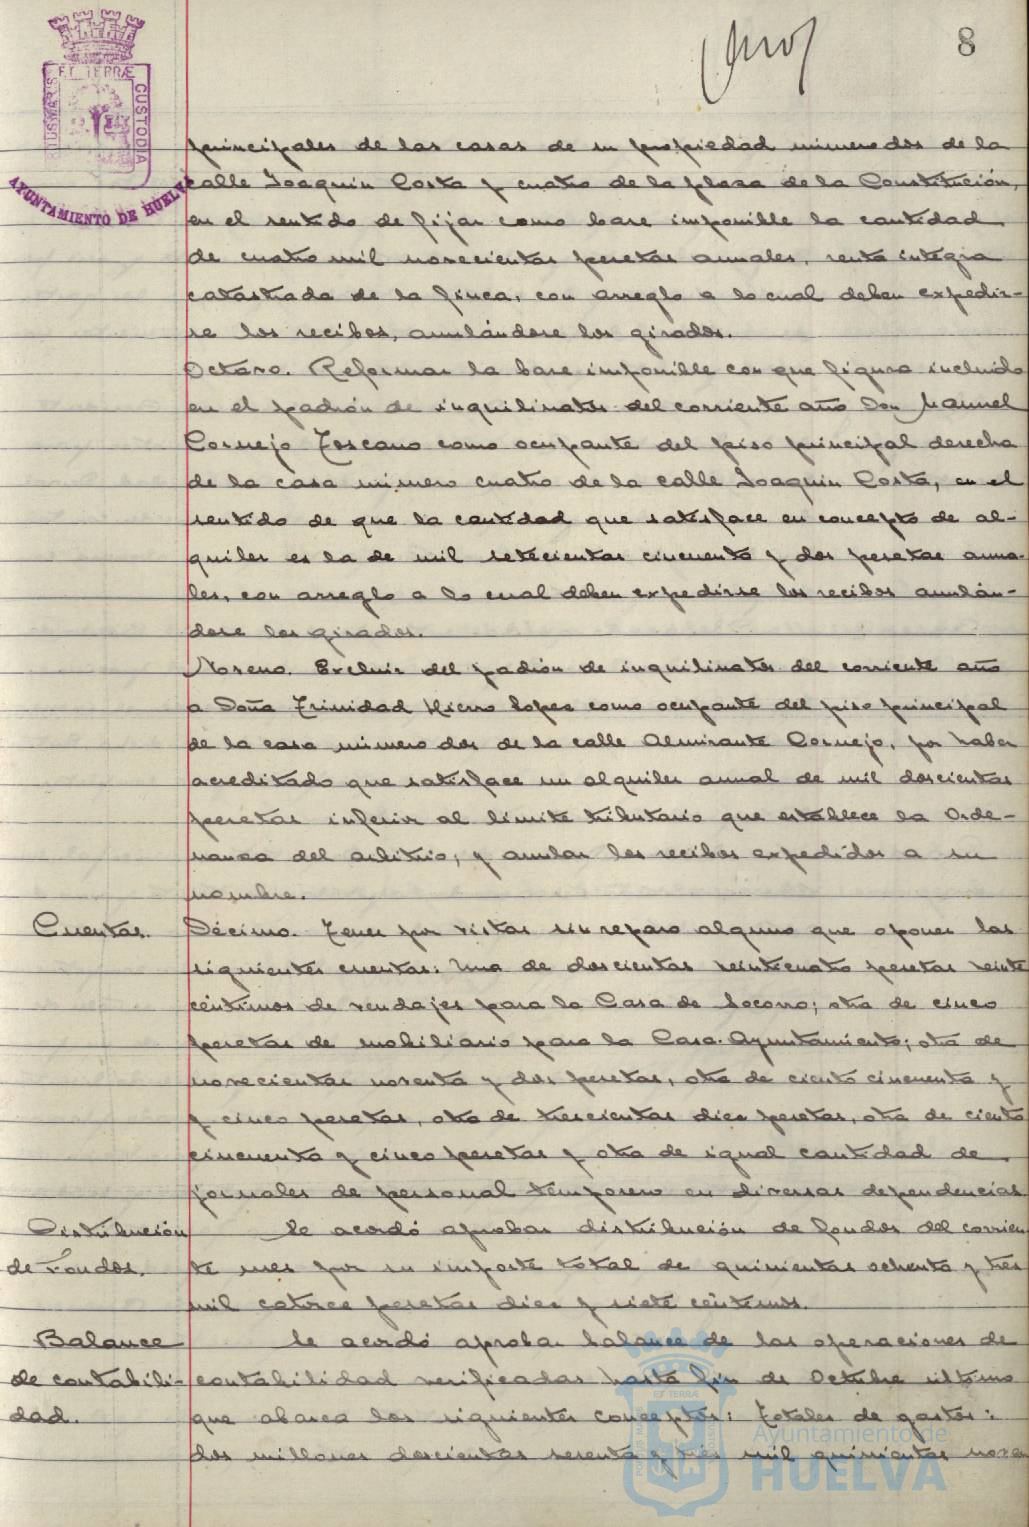 8
PORTUS MARIS ET TERRÆ CUSTODIA
AYUNTAMIENTO DE HUELVA
principales de las casas de su propiedad número dos de la
calle Joaquin Costa y cuatro de la plaza de la Constitución,
en el sentido de fijar como base imponible la cantidad
de cuatro mil novecientas pesetas anuales, renta integra
catastrada de la finca, con arreglo a lo cual deben expedir-
se los recibos, anulándose los girados.
Octavo. Reformar la base imponible con que figura incluido
en el padrón de inquilinatos del corriente año Don Manuel
Cornejo Toscano como ocupante del piso principal derecha
de la casa número cuatro de la calle Joaquin Costa, en el
sentido de que la cantidad que satisface en concepto de al-
quiler es la de mil setecientas cincuenta y dos pesetas anua-
les, con arreglo a lo cual deben expedirse los recibos anulán-
dose los girados.
Noveno. Excluir del padrón de inquilinatos del corriente año
a Doña Trinidad Hierro Lopez como ocupante del piso principal
de la casa número dos de la calle Almirante Cornejo, por haber
acreditado que satisface un alquiler anual de mil doscientas
pesetas inferior al limite tributario que establece la Orde-
nanza del arbitrio, y anular los recibos expedidos a su
nombre.
Cuentas. Décimo. Tener por vistas sin reparo alguno que oponer las
siguientes cuentas: Una de doscientas veinticuatro pesetas veinte
céntimos de vendajes para la Casa de Socorro; otra de cinco
pesetas de mobiliario para la Casa-Ayuntamiento; otra de
novecientas noventa y dos pesetas, otra de ciento cincuenta y
y cinco pesetas, otra de trescientas diez pesetas, otra de ciento
cincuenta y cinco pesetas y otra de igual cantidad de
jornales de personal temporero en diversas dependencias.
Distribución Se acordó aprobar distribución de fondos del corrien
de Fondos. te mes por su importe total de quinientas ochenta y tres
mil catorce pesetas diez y siete céntimos.
Balance Se acordó aprobar balance de las operaciones de
de contabili- contabilidad verificadas hasta fin de Octubre último
dad. que abarca los siguientes conceptos: Totales de gastos:
dos millones doscientas sesenta y tres mil quinientas noven
PORTUS MARIS ET TERRÆ CUSTODIA
Ayuntamiento de
HUELVA